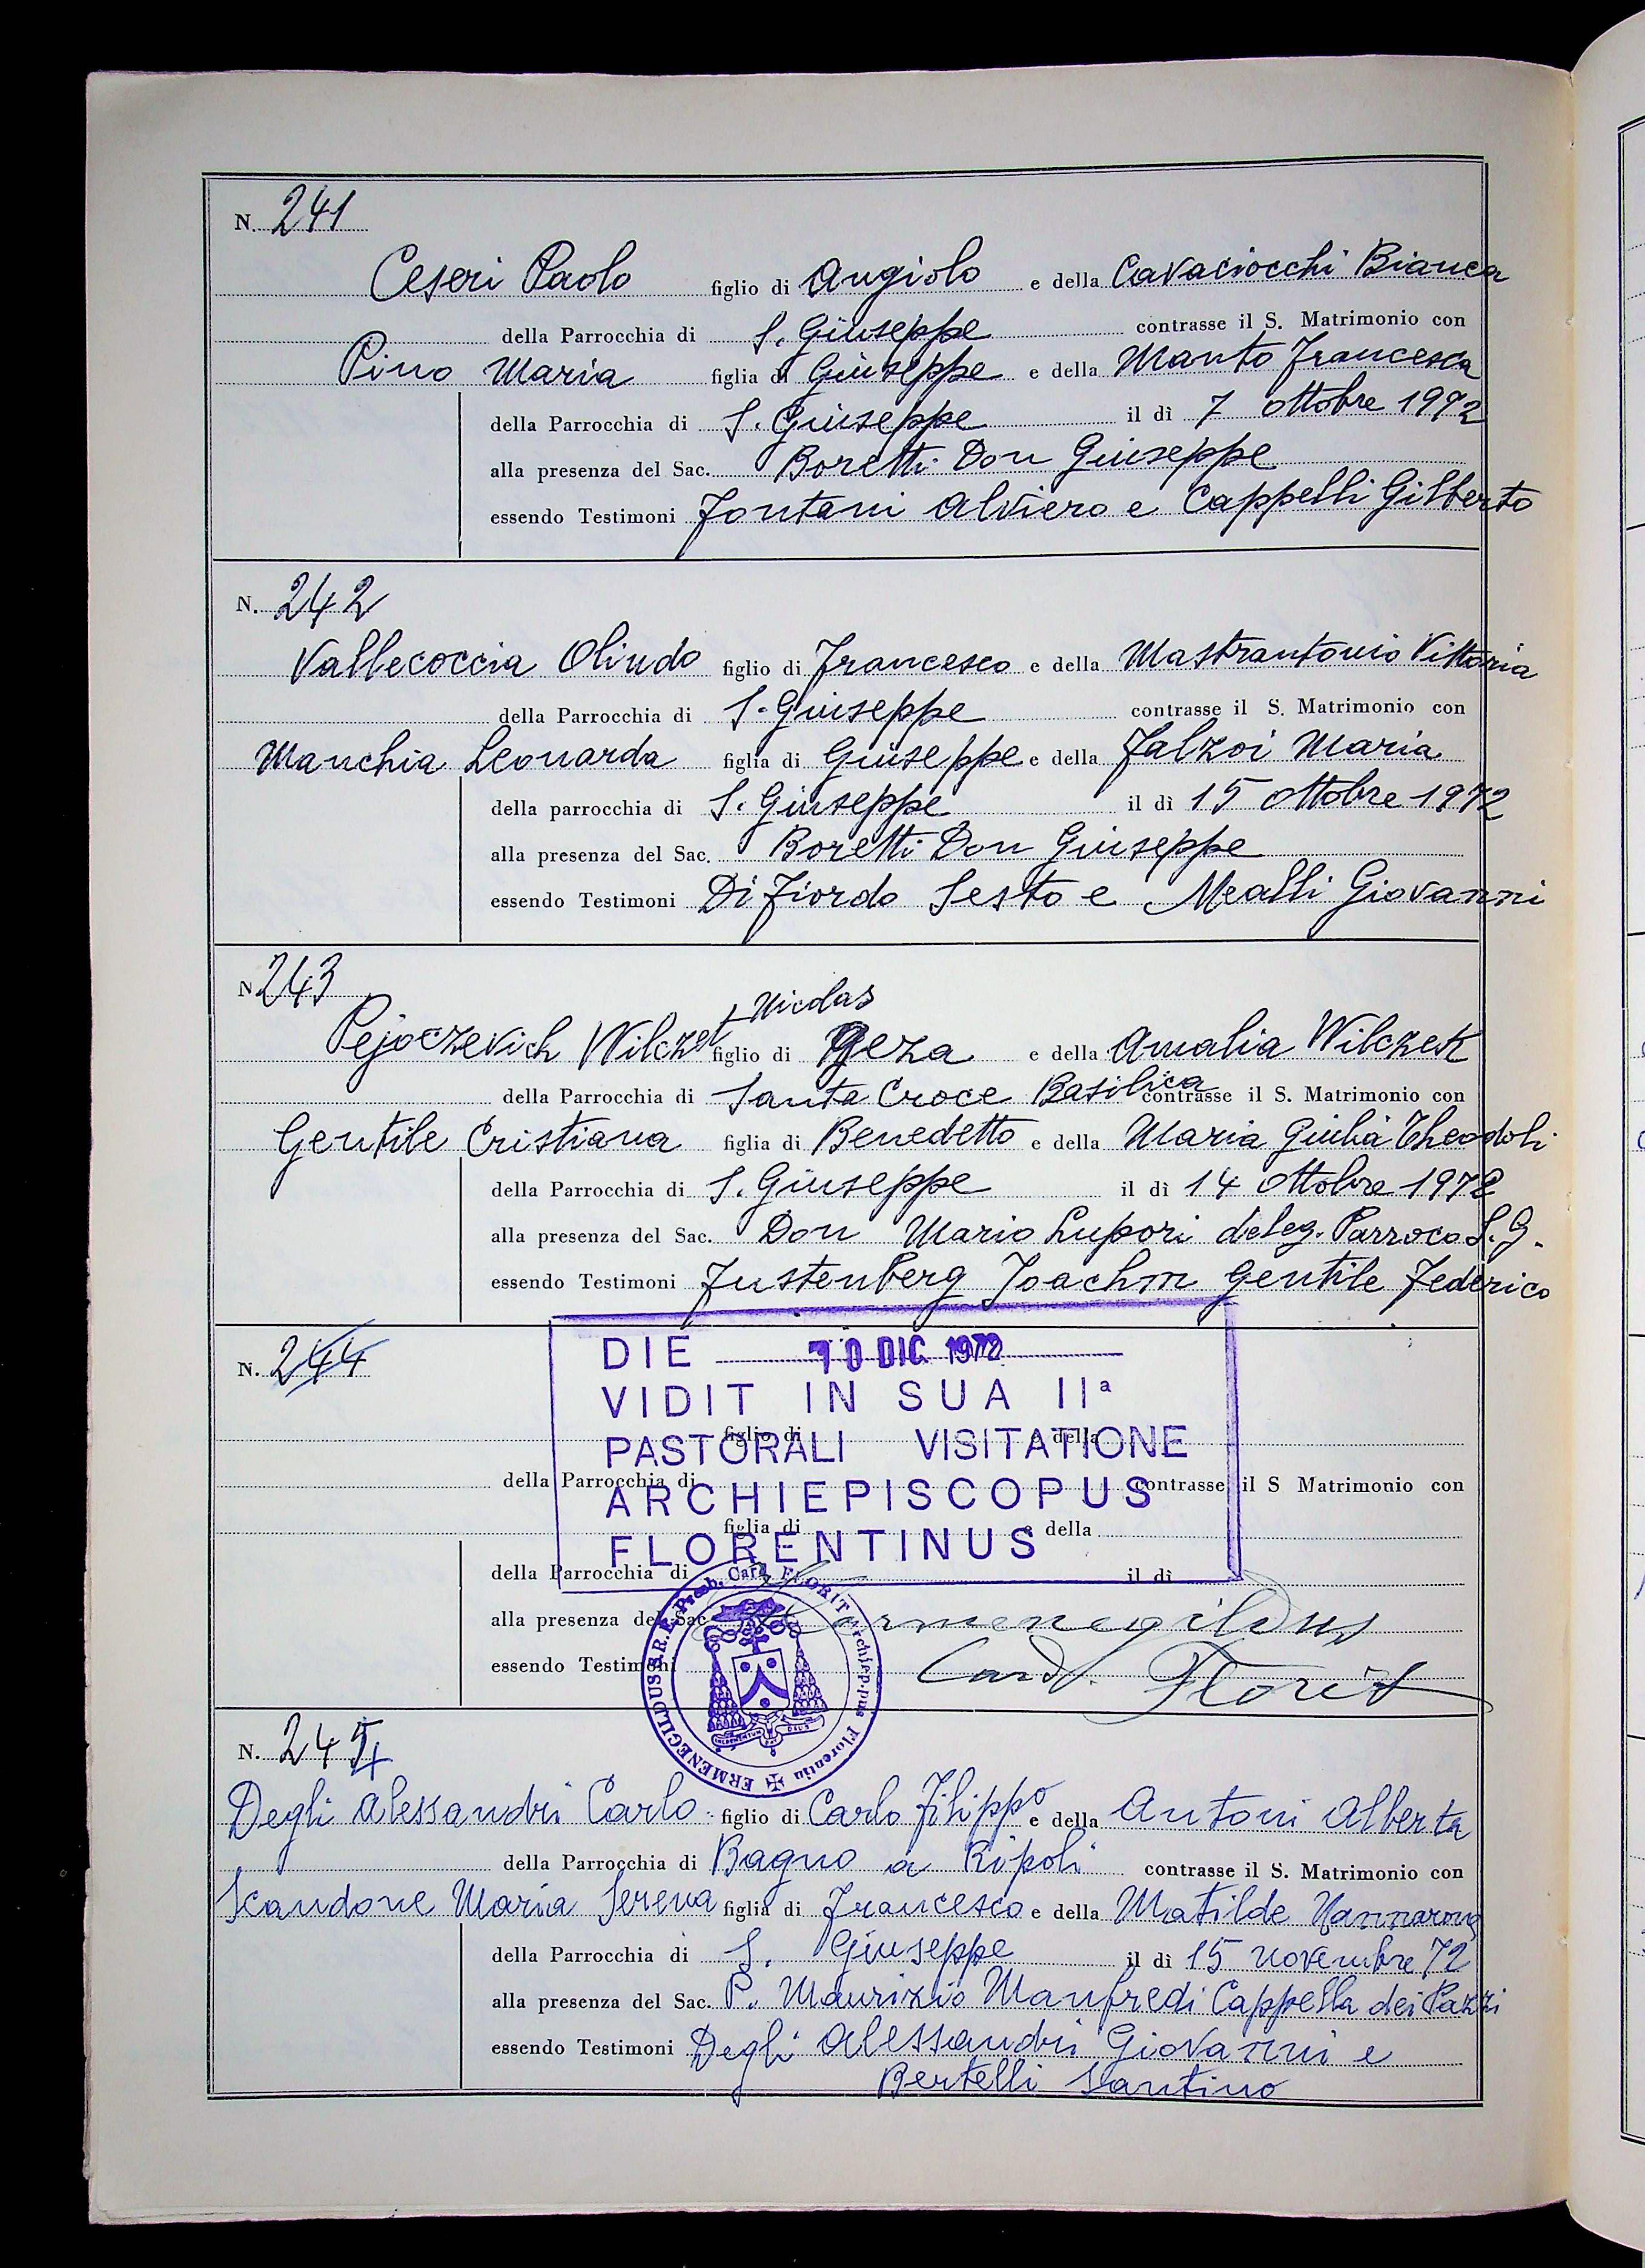 N. 241
Ceseri Paolo figlio di Angiolo e della Cavaciocchi Bianca
della Parrocchia di S. Giuseppe contrasse il S. Matrimonio con
Pino Maria figlia di Giuseppe e della Manto Francesca
della Parrocchia di S. Giuseppe il dì 7 Ottobre 1972
alla presenza del Sac. Boretti Don Giuseppe
essendo Testimoni Fontani Alviero e Cappelli Gilberto
N. 242
Vallecoccia Olindo figlio di Francesco e della Mastrantonio Vittoria
della Parrocchia di S. Giuseppe contrasse il S. Matrimonio con
Manchia Leonarda figlia di Giuseppe e della Falzoi Maria
della parrocchia di S. Giuseppe il dì 15 Ottobre 1972
alla presenza del Sac. Boretti Don Giuseppe
essendo Testimoni Di Fiordo Sesto e Mealli Giovanni
N. 243
Nicolas
Pejoczevich Wilczek figlio di Geza e della Amalia Wilczek
della Parrocchia di Santa Croce Basilica contrasse il S. Matrimonio con
Gentile Cristiana figlia di Benedetto e della Maria Giulia Theodoli
della Parrocchia di S. Giuseppe il dì 14 Ottobre 1972
alla presenza del Sac. Don Mario Lupori deleg. Parroco S. G.
essendo Testimoni Fustenberg Joachm Gentile Federico
N. 244
DIE 10 DIC. 1972
VIDIT IN SUA IIª
figlio di e della
PASTORALI VISITATIONE
della Parrocchia di contrasse il S Matrimonio con
ARCHIEPISCOPUS
figlia di e della
FLORENTINUS
della Parrocchia di il dì
alla presenza del Sac. Hermenegildus
essendo Testimoni Card. Florit
ERMENEGILDUS S.R.E. Presb. Card. FLORIT Archiep-pus Florentiae
N. 244
Degli Alessandri Carlo figlio di Carlo Filippo e della Antoni Alberta
della Parrocchia di Bagno a Ripoli contrasse il S. Matrimonio con
Scandone Maria Serena figlia di Francesco e della Matilde
della Parrocchia di S. Giuseppe il dì 15 novembre 72
alla presenza del Sac. P. Maurizio Manfredi Cappella dei Pazzi
essendo Testimoni Degli Alessandri Giovanni e
Bertelli Santino